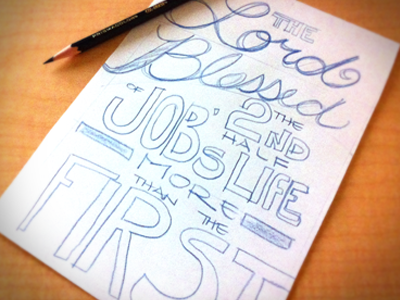 THE
Lord
Blessed
THE
2ND
HALF
OF
JOB'S
LIFE
MORE
THAN THE
FIRST